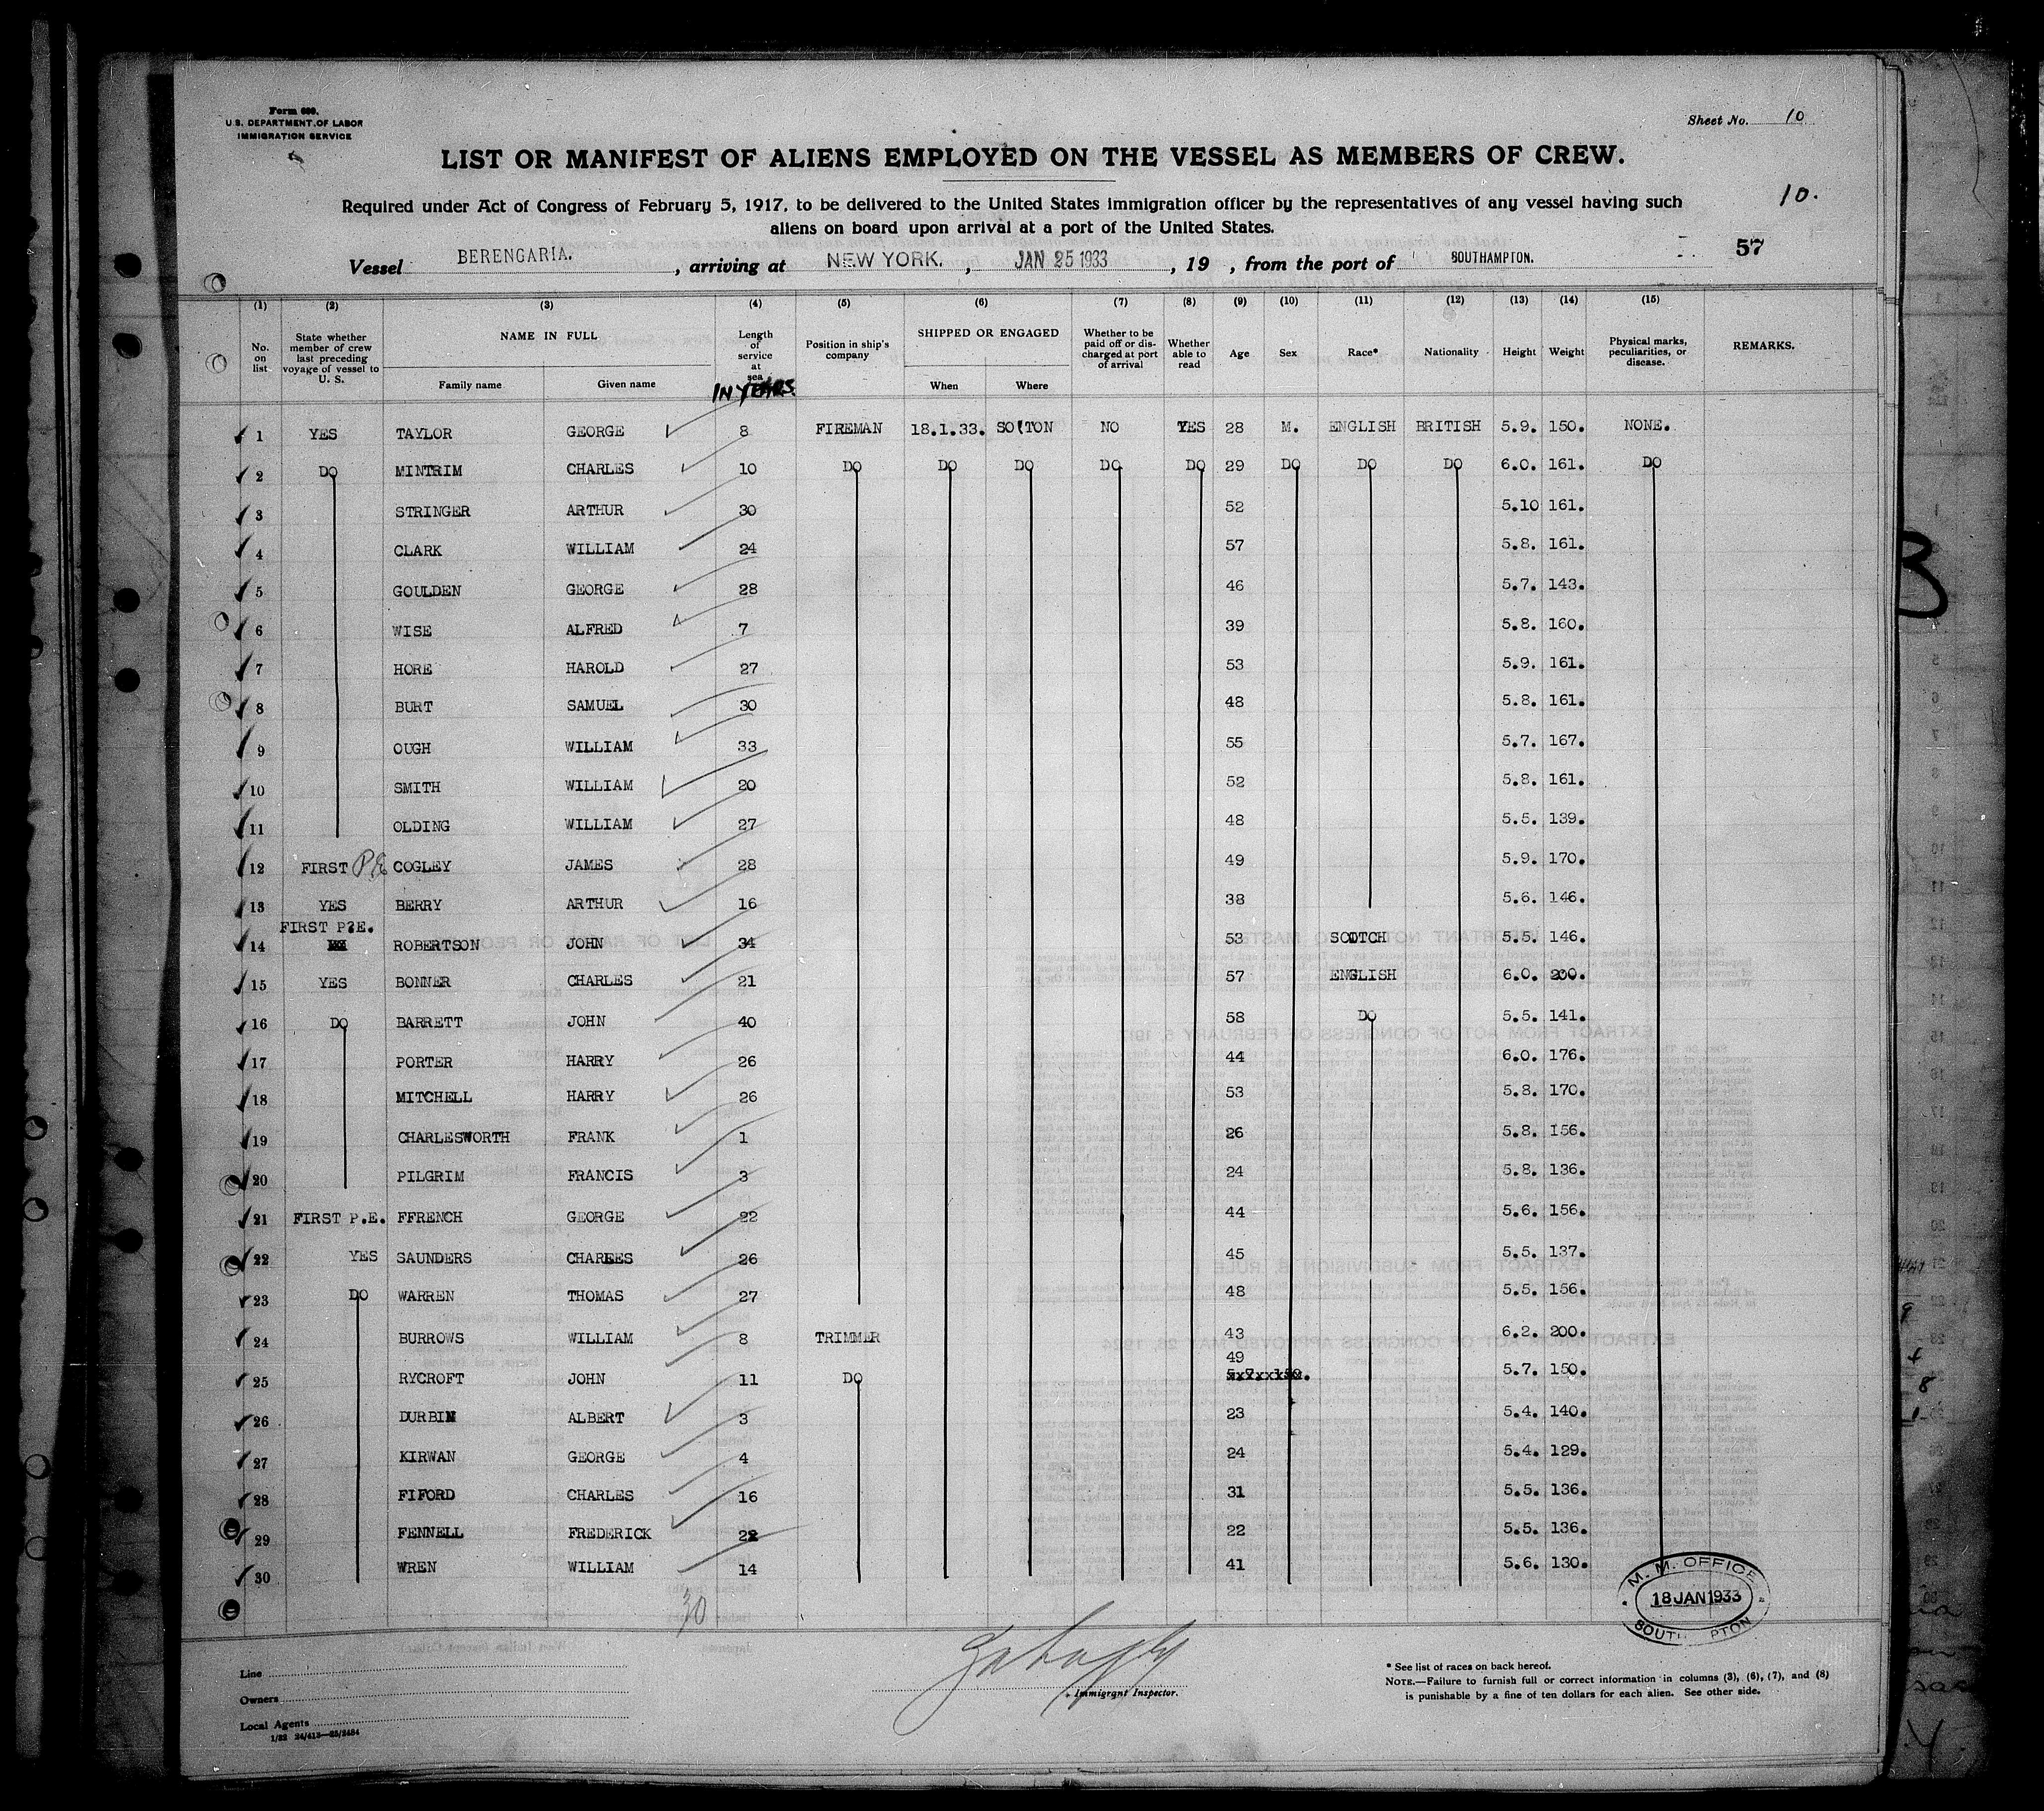 Form 680.
U.S. DEPARTMENT OF LABOR
IMMIGRATION SERVICE
Sheet No. 10
LIST OR MANIFEST OF ALIENS EMPLOYED ON THE VESSEL AS MEMBERS OF CREW.
10.
Required under Act of Congress of February 5, 1917, to be delivered to the United States immigration officer by the representatives of any vessel having such
aliens on board upon arrival at a port of the United States.
57
Vessel BERENGARIA. , arriving at NEW YORK. , JAN 25 1933 , 19 , from the port of SOUTHAMPTON.
(1) (2) (3) (4) (5) (6) (7) (8) (9) (10) (11) (12) (13) (14) (15)
No. on list State whether member of crew last preceding voyage of vessel to U. S. NAME IN FULL Family name Given name Length of service at sea IN YEARS. Position in ship's company SHIPPED OR ENGAGED When Where Whether to be paid off or discharged at port of arrival Whether able to read Age Sex Race* Nationality Height Weight Physical marks, peculiarities, or disease. REMARKS.
1 YES TAYLOR GEORGE 8 FIREMAN 18.1.33. SO'TON NO YES 28 M. ENGLISH BRITISH 5.9. 150. NONE.
2 DO MINTRIM CHARLES 10 DO DO DO DO DO 29 DO DO DO 6.0. 161. DO
3 STRINGER ARTHUR 30 52 5.10 161.
4 CLARK WILLIAM 24 57 5.8. 161.
5 GOULDEN GEORGE 28 46 5.7. 143.
6 WISE ALFRED 7 39 5.8. 160.
7 HORE HAROLD 27 53 5.9. 161.
8 BURT SAMUEL 30 48 5.8. 161.
9 OUGH WILLIAM 33 55 5.7. 167.
10 SMITH WILLIAM 20 52 5.8. 161.
11 OLDING WILLIAM 27 48 5.5. 139.
12 FIRST P.E. COGLEY JAMES 28 49 5.9. 170.
13 YES BERRY ARTHUR 16 38 5.6. 146.
14 FIRST P?E. ROBERTSON JOHN 34 53 SCOTCH 5.5. 146.
15 YES BONNER CHARLES 21 57 ENGLISH 6.0. 200.
16 DO BARRETT JOHN 40 58 DO 5.5. 141.
17 PORTER HARRY 26 44 6.0. 176.
18 MITCHELL HARRY 26 53 5.8. 170.
19 CHARLESWORTH FRANK 1 26 5.8. 156.
20 PILGRIM FRANCIS 3 24 5.8. 136.
21 FIRST P.E. FFRENCH GEORGE 22 44 5.6. 156.
22 YES SAUNDERS CHARLES 26 45 5.5. 137.
23 DO WARREN THOMAS 27 48 5.5. 156.
24 BURROWS WILLIAM 8 TRIMMER 43 6.2. 200.
25 RYCROFT JOHN 11 DO 49 5.7. 150.
26 DURBIN ALBERT 3 23 5.4. 140.
27 KIRWAN GEORGE 4 24 5.4. 129.
28 FIFORD CHARLES 16 31 5.5. 136.
29 FENNELL FREDERICK 22 22 5.5. 136.
30 WREN WILLIAM 14 41 5.6. 130.
30
M. M. OFFICE
18 JAN 1933
Line
Owners
Local Agents
1/32 24/413—25/2484
Immigrant Inspector.
* See list of races on back hereof.
NOTE.—Failure to furnish full or correct information in columns (3), (6), (7), and (8)
is punishable by a fine of ten dollars for each alien. See other side.